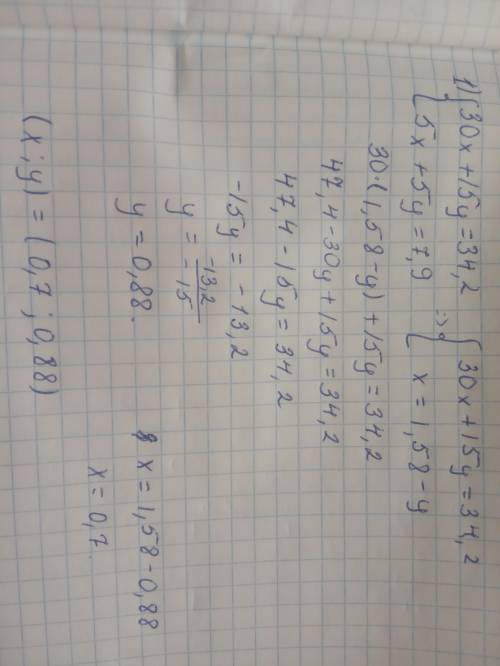 1) { 30x + 15y = 34,2 => { 30x + 15y = 34,2
5x + 5y = 7,9 x = 1,58 - y
30·(1,58 - y) + 15y = 34,2
47,4 - 30y + 15y = 34,2
47,4 - 15y = 34,2
-15y = -13,2
y = -13,2 / -15
y = 0,88. x = 1,58 - 0,88
x = 0,7
(x ; y) = (0,7 ; 0,88)